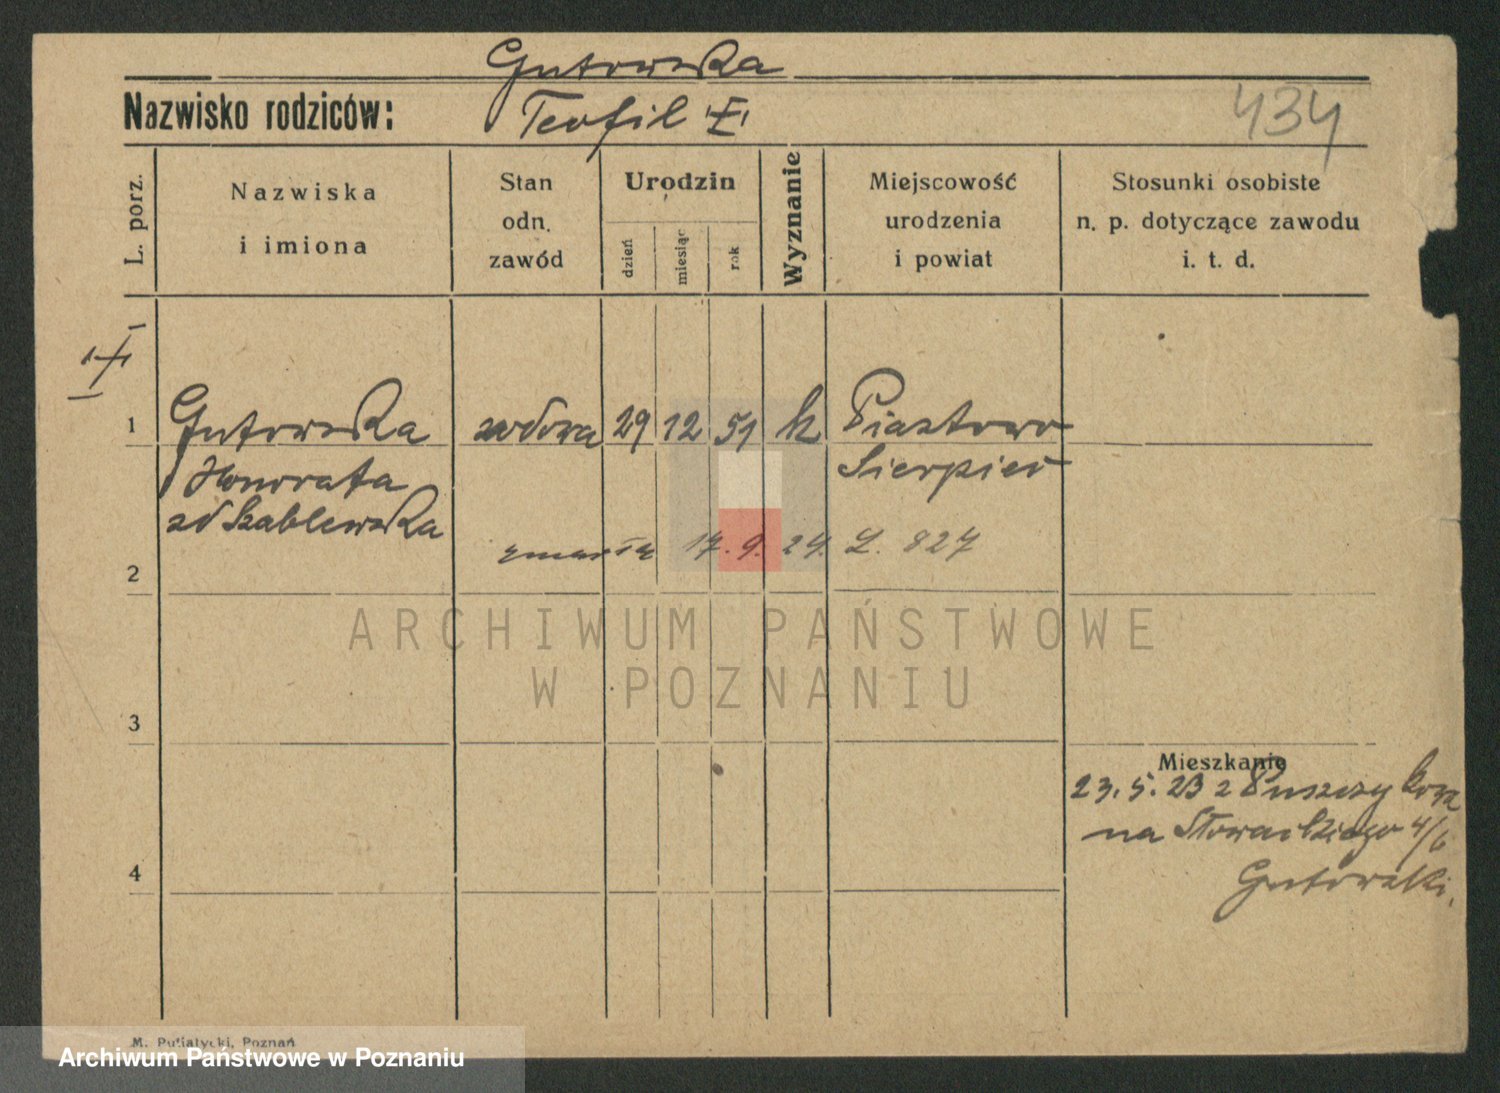 Gutowska
Nazwisko rodziców: Teofil
434
L. porz.
Nazwiska
i imiona
Stan
odn.
zawód
Urodzin
dzień
miesiąc
rok
Wyznanie
Miejscowość
urodzenia
i powiat
Stosunki osobiste
n. p. dotyczące zawodu
i. t. d.
1 Gutowska wdowa 29 12 51 k Piastowo
Honorata Sierpień
zd Szablewska
zmarła 17. 9. 24. L. 827
2
ARCHIWUM PAŃSTWOWE
W POZNANIU
3
Mieszkanie
23. 5. 23 z Puszczykowa
na Słowackiego 4/6
4
Gutowski.
M. Putiatycki, Poznań
Archiwum Państwowe w Poznaniu